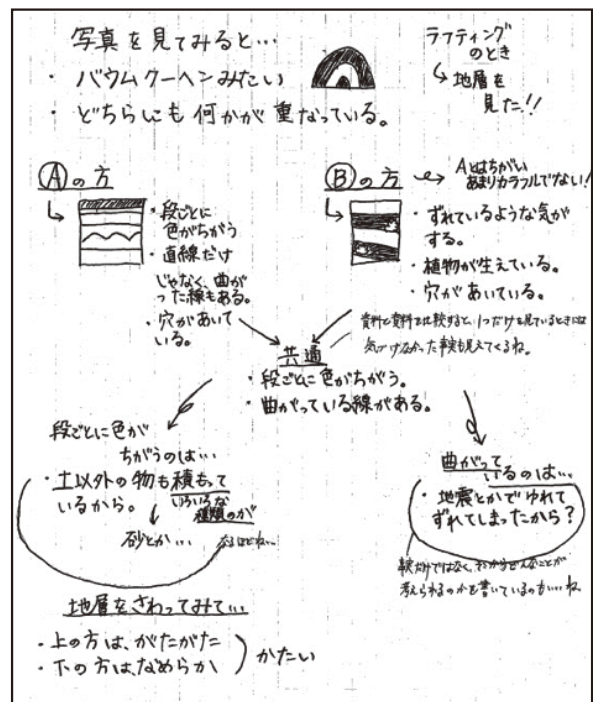 写真を見てみると…
・バウムクーヘンみたい
・どちらにも何かが重なっている。
ラフティング
のとき
地層を
見た!!
Ⓐの方
・段ごとに
色がちがう
・直線だけ
じゃなく、曲が
った線もある。
・穴があいて
いる。
Ⓑの方
Aとはちがい
あまりカラフルでない!
・ずれているような気が
する。
・植物が生えている。
・穴があいている。
資料と資料を比較すると、1つだけを見ているときには
気づけなかった事実も見えてくるね。
共通
・段ごとに色がちがう。
・曲がっている線がある。
段ごとに色が
ちがうのは…
・土以外の物も積もって
いるから。
いろいろな
種類のが
砂とか…
なるほどね…
曲がって
いるのは…
・地震とかでゆれて
ずれてしまったから?
事実だけではなく、そこからどんなことが
考えられるのかを書いているのもいいね
地層をさわってみて…
・上の方は、がたがた
・下の方は、なめらか
かたい